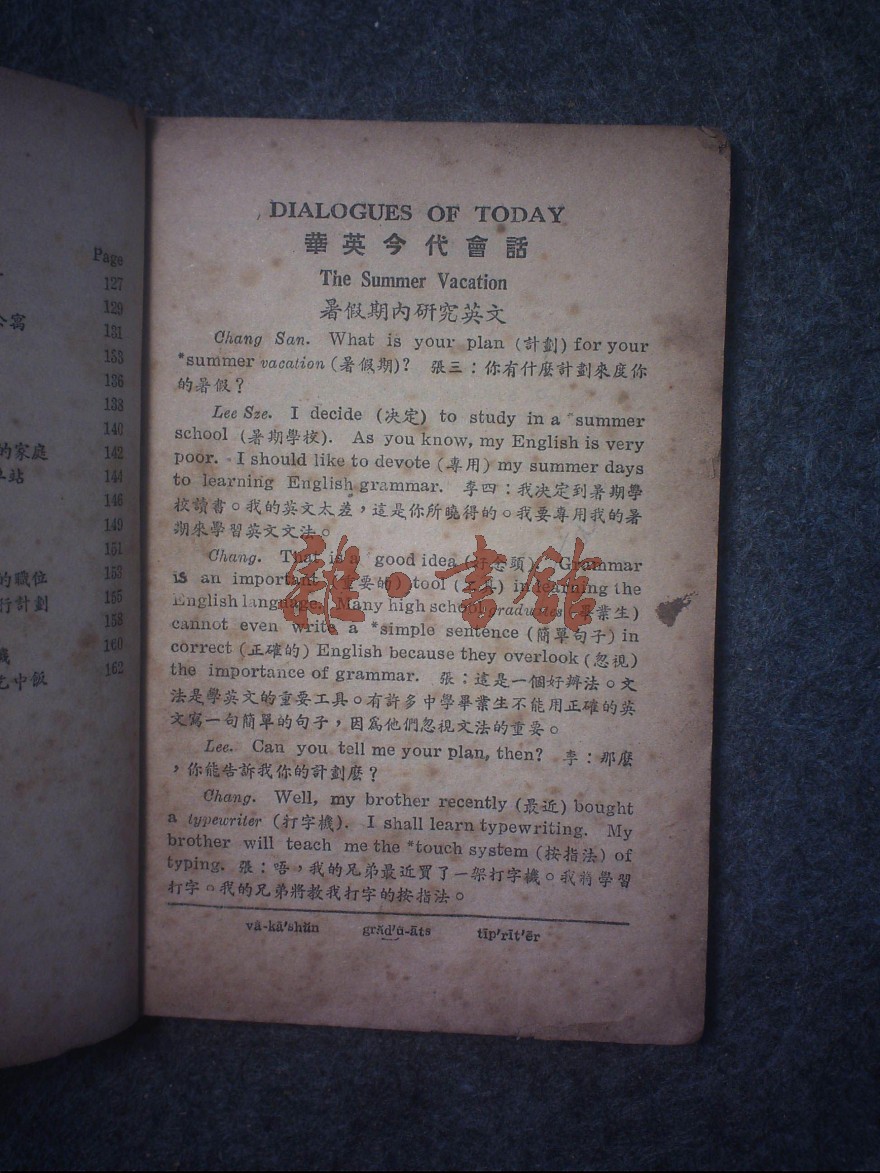 Page
127
129
公寓
131
133
136
138
140
的家庭
142
車站
144
146
149
151
的職位
153
行計劃
155
158
160
吃中飯
162
DIALOGUES OF TODAY
華英今代會話
The Summer Vacation
暑假期內研究英文
Chang San. What is your plan (計劃) for your
*summer vacation (暑假期)? 張三：你有什麼計劃來度你
的暑假？
Lee Sze. I decide (决定) to study in a summer
school (暑期學校). As you know, my English is very
poor. I should like to devote (專用) my summer days
to learning English grammar. 李四：我决定到暑期學
校讀書。我的英文太差，這是你所曉得的。我要專用我的暑
期來學習英文文法。
Chang. That is a good idea (好念頭). Grammar
is an important (重要的) tool (工具) in learning the
English language. Many high school graduates (畢業生)
cannot even write a *simple sentence (簡單句子) in
correct (正確的) English because they overlook (忽視)
the importance of grammar. 張：這是一個好辦法。文
法是學英文的重要工具。有許多中學畢業生不能用正確的英
文寫一句簡單的句子，因爲他們忽視文法的重要。
Lee. Can you tell me your plan, then? 李：那麼
，你能告訴我你的計劃麼？
Chang. Well, my brother recently (最近) bought
a typewriter (打字機). I shall learn typewriting. My
brother will teach me the *touch system (按指法) of
typing. 張：唔，我的兄弟最近買了一架打字機。我將學習
打字。我的兄弟將教我打字的按指法。
vā-kā'shŭn grăd'ū-āts tīp'rīt'ẽr
雜·書館